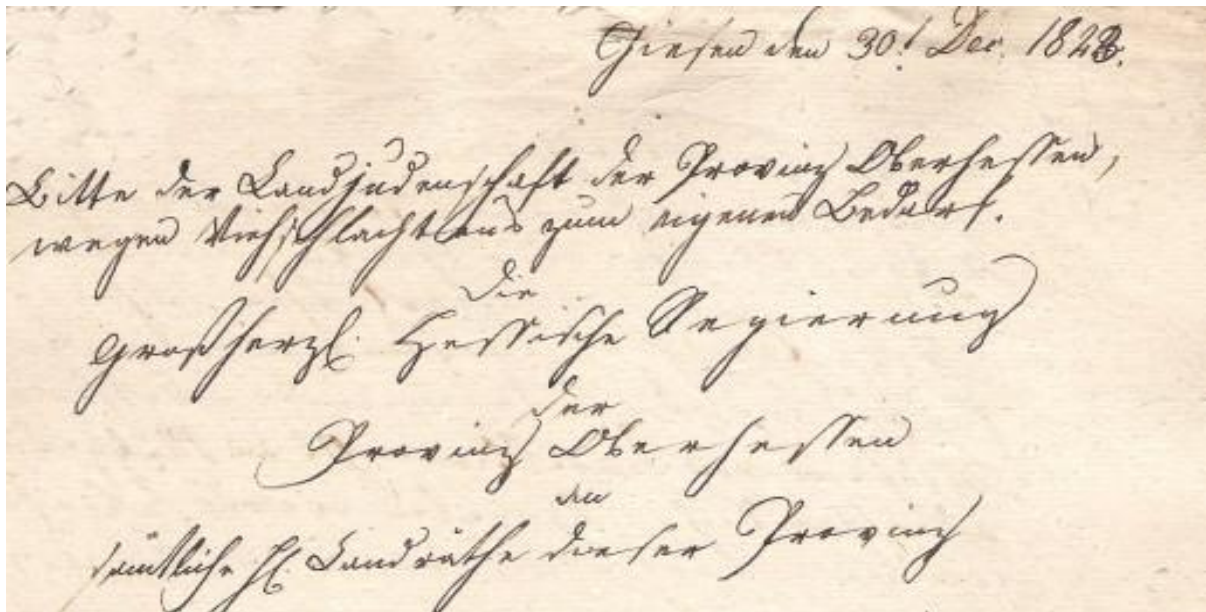 Giesen den 30t Dec. 1823.
Bitte der Landjudenschaft der Provinz Oberhessen,
wegen Viehschlachtens zum eigenen Bedarf.
Die
Großherzl. Hessische Regierung
der
Provinz Oberhessen
an
sämtliche H. Landräthe dieser Provinz